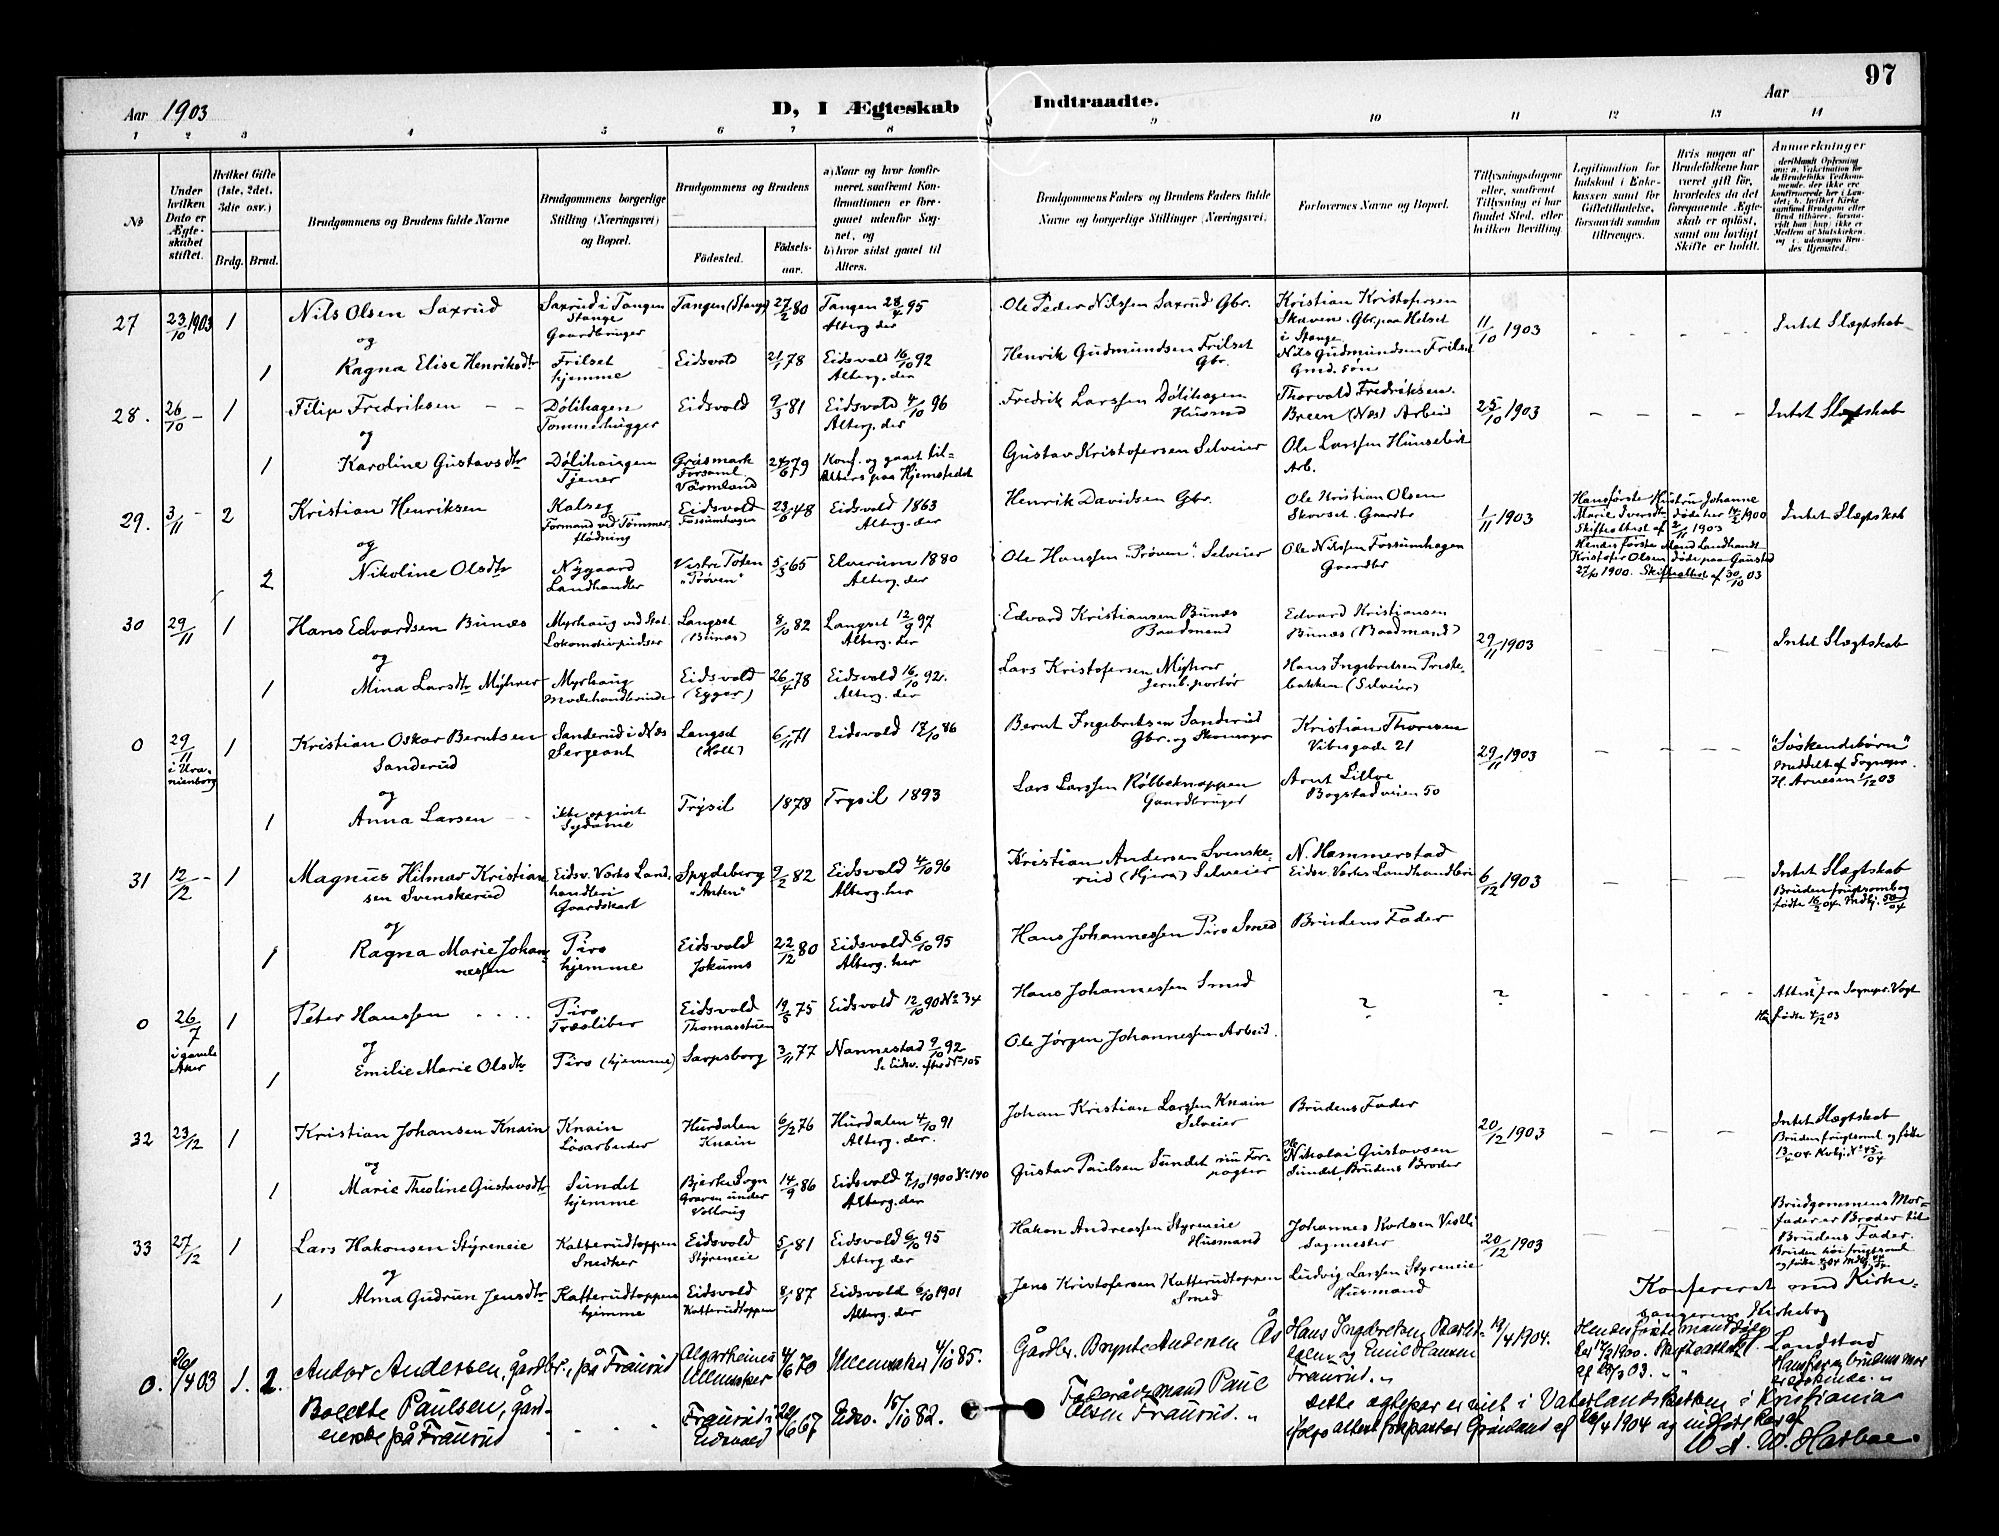 97
Aar 1903
D, I Ægteskab Indtraadte.
Aar
1 2 3 4 5 6 7 8 9 10 11 12 13 14
№
Under hvilken Dato er Ægteskabet stiftet.
Hvilket Gifte (1ste, 2det, 3die osv.)
Brdg. Brud.
Brudgommens og Brudens fulde Navne
Brudgommens borgerlige Stilling (Næringsvei) og Bopæl.
Brudgommens og Brudens
Fødested.
Fødselsaar.
a) Naar og hvor konfirmeret, saafremt Konfirmationen er foregaaet udenfor Sognet, og
b) hvor sidst gaaet til Alters.
Brudgommens Faders og Brudens Faders fulde Navne og borgerlige Stillinger (Næringsvei).
Forlovernes Navne og Bopæl.
Tillysningsdagene eller, saafremt Tillysning ei har fundet Sted, efter hvilken Bevilling.
Legitimation for Indskud i Enkekassen samt for Giftetilladelse, forsaavidt saadan tiltrænges.
Hvis nogen af Brudefolkene har været gift før, hvorledes da det foregaaende Ægteskab er opløst, samt om lovligt Skifte er holdt.
Anmerkninger
27 23/10 1903 1 Nils Olsen Saxrud Saxrud i Tangen Stange Gaardbruger Tangen (Stange) 27/2 80 Tangen 28/4 95 Alterg. der Ole Peder Nilssen Saxrud Gbr. Kristian Kristofersen Skaven. Gbr. paa Helset i Stange 11/10 1903 Intet Slægtskab
og
1 Ragna Elise Henriksdtr Frilset hjemme Eidsvold 21/1 78 Eidsvold 16/10 92 Alterg. der Henrik Gudmundsen Frilset Gbr. Nils Gudmundsen Frilset Gmd. søn
28. 26/10 - 1 Filip Fredriksen Dölihagen Tømmerhugger Eidsvold 9/3 81 Eidsvold 4/10 96 Alterg. der Fredrik Larssen Dölihagen Husmd Thorvald Fredriksen. Breen (Nes) Arbeid 25/10 1903 Intet Slægtskab
og
1 Karoline Gustavsdtr Dölihaugen Tjener Gräsmark Forsaml. Värmland 24/6 79 Konf. og gaaet til Alters paa Hjemstedet Gustav Kristofersen Selveier Ole Larssen Arb.
29. 3/11 - 2 Kristian Henriksen Kalseg Formand ved Tømmerflödning Eidsvold Fossumhagen 23/6 48 Eidsvold 1863 Alterg. der Henrik Davidsen Gbr. Ole Kristian Olsen Skovset. Gaardbr 1/11 1903 Hans første Hustru Johanne Marie Iversdtr døde her 14/2 1900 Skifteattest af 2/11 1903 Intet Slægtskab
og
2 Nikoline Olsdtr Nygaard Landhandler Vestre Toten "Prøven" 5/3 65 Elverum 1880 Alterg. der Ole Hanssen "Prøven". Selveier Ole Nilssen Fossumhagen Gaardbr Hendes første Mand Landhandl Kristofer Olsen døde paa Gaustad 1900. Skifteattest af 30/10 03
30 29/11 1 Hans Edvardsen Bunæs Myrhaug ved Stat. Lokomotivpudser Langset (Bunæs) 8/10 82 Langset 12/9 97 Alterg. der Edvard Kristiansen Bunæs Baadmand Edvard Kristiansen Bunæs (Baadmand) 29/11 1903 Intet Slægtskab
og
1 Mina Larsdtr Myhrer Myrhaug Modehandlerinde Eidsvold (Egger) 26/4 78 Eidsvold 16/10 92. Alterg. der Lars Kristofersen Myhrer Jernb. portør Hans Ingebretsen Prestebakken (Selveier)
0 29/11 i Uranienborg 1 Kristian Oskar Berntsen Sanderud Sanderud i Næs Sergeant Langset (Holt) 6/11 71 Eidsvold 17/10 86 Bernt Ingebretsen Sanderud Gbr. og Skomager Kristian Thoresen Vibesgade 21 29/11 1903 "Söskendebörn" Meddelt af Sognepr. H. Arnesen 1/12 03
og
1 Anna Larsen ikke opgivet Sydame Trysil 1878 Trysil 1893 Lars Larssen Robbeknappen Gaardbruger Arnt Lillve Bogstadveien 50
31 12/12 - 1 Magnus Hilmar Kristiansen Svenskerud Eidsv. Verks Landhandleri Gaardskarl Spydeberg "Anten" 9/2 82 Eidsvold 4/10 96 Alterg. her Kristian Andersen Svenskerud (Hjera) Selveier N. Hammerstad Eidsv. Verks Landhandleri 6/12 1903 Intet Slægtskab Bruden frugtsomb og fødte 16/2 04
og
1 Ragna Marie Johannessen Piro hjemme Eidsvold Jokums 22/12 80 Eidsvold 6/10 95 Alterg. her Hans Johannessen Piro Smed Brudens Fader
0 26/7 i gamle Aker 1 Peter Hanssen Piro Træsliber Eidsvold Thomasstuen 19/5 75 Eidsvold 12/10 90 № 34 Hans Johannessen Smed ? ? Attest fra Sognepr. Vogt Hun fødte 4/12 03
og
1 Emilie Marie Olsdtr Piro (hjemme) Sarpsborg 3/11 77 Nannestad 9/10 92 Se Eidsv. № 105 Ole Jørgen Johannessen Arbeid.
32 23/12 1 Kristian Johansen Knain Knain Løsarbeider Hurdalen Knain 6/12 76 Hurdalen 4/10 91 Alterg. der. Johan Kristian Larssen Knain Selveier Brudens Fader 20/12 1903 Intet Slægtskab Bruden frugtsoml og fødte 13/4 04
og
1 Marie Theoline Gustavsdtr Sundet hjemme Bjerke Sogn Graven under 14/9 86 Eidsvold 7/10 1900 № 140 Alterg. der Gustav Paulsen Sundet nu Forpagter Ole Nikolai Gustavsen Sundet, Brudens Broder
33 27/12 1 Lars Hakonsen Styreneie Katterudtoppen Snedker Eidsvold Styreneie 5/1 81 Eidsvold 6/10 95 Alterg der Hakon Andreassen Styreneie Husmand Johannes Karlsen Vestli Sagmester 20/12 1903 Brudgommens Morfader er Broder til Brudens Fader.
og
1 Alma Gudrun Jensdtr Katterudtoppen hjemme Eidsvold Katterudtoppen 8/1 87 Eidsvold 6/10 1901 Alterg. der Jens Kristofersen Katterudtoppen Smed Ludvig Larssen Styreneie Husmand
Konfereret med Kirkesangerens Kirkebog
Landstad
0. 26/4 03 1. 2. Andor Andersen, gårdbr., på Fraurud Algarheimes Ullensaker 4/6 70 Ullensaker 4/10 85. Gårdbr. Andersen Ås Hans Ingebretsen og Emil Hansen Fraurud. 4 1904.
Bolette Paulsen, gårdeierske på Fraurud Fraurud i Eidsvold 67 Eidsv. 15/10 82. Føderådsmand Paul Olsen Fraurud.
dette ægtepar er viet i Vaterlands kirken i Kristiania ifølge attest fra pastor Grønland af 26/4 1904 og indført her af W. Harboe.